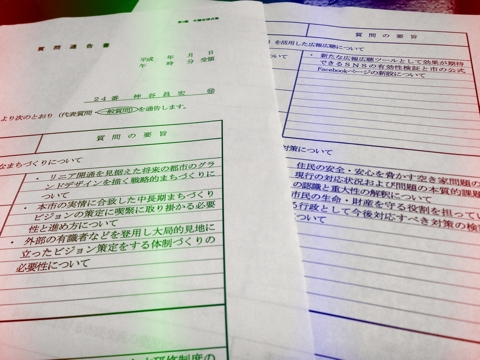 質問通告書
平成　年　月　日
午　時　分 受領
24番　神谷昌宏　㊞
より次のとおり（代表質問・一般質問）を通告します。
質問の要旨
なまちづくりについて
・リニア開通を見据えた将来の都市のグラ
ンドデザインを描く戦略的まちづくりに
ついて
・本市の実情に合致した中長期まちづくり
ビジョンの策定に喫緊に取り掛かる必要
性と進め方について
・外部の有識者などを登用し大局的見地に
立ったビジョン策定をする体制づくりの
必要性について
研修制度の
質問の要旨
を活用した広報広聴について
・新たな広報広聴ツールとして効果が期待
できるSNSの有効性検証と市の公式
Facebookページの新設について
対策について
住民の安全・安心を脅かす空き家問題の
現行の対応状況および問題の本質的課題
の認識と重大性の解釈について
市民の生命・財産を守る役割を担ってい
る行政として今後対応すべき対策の検
ついて